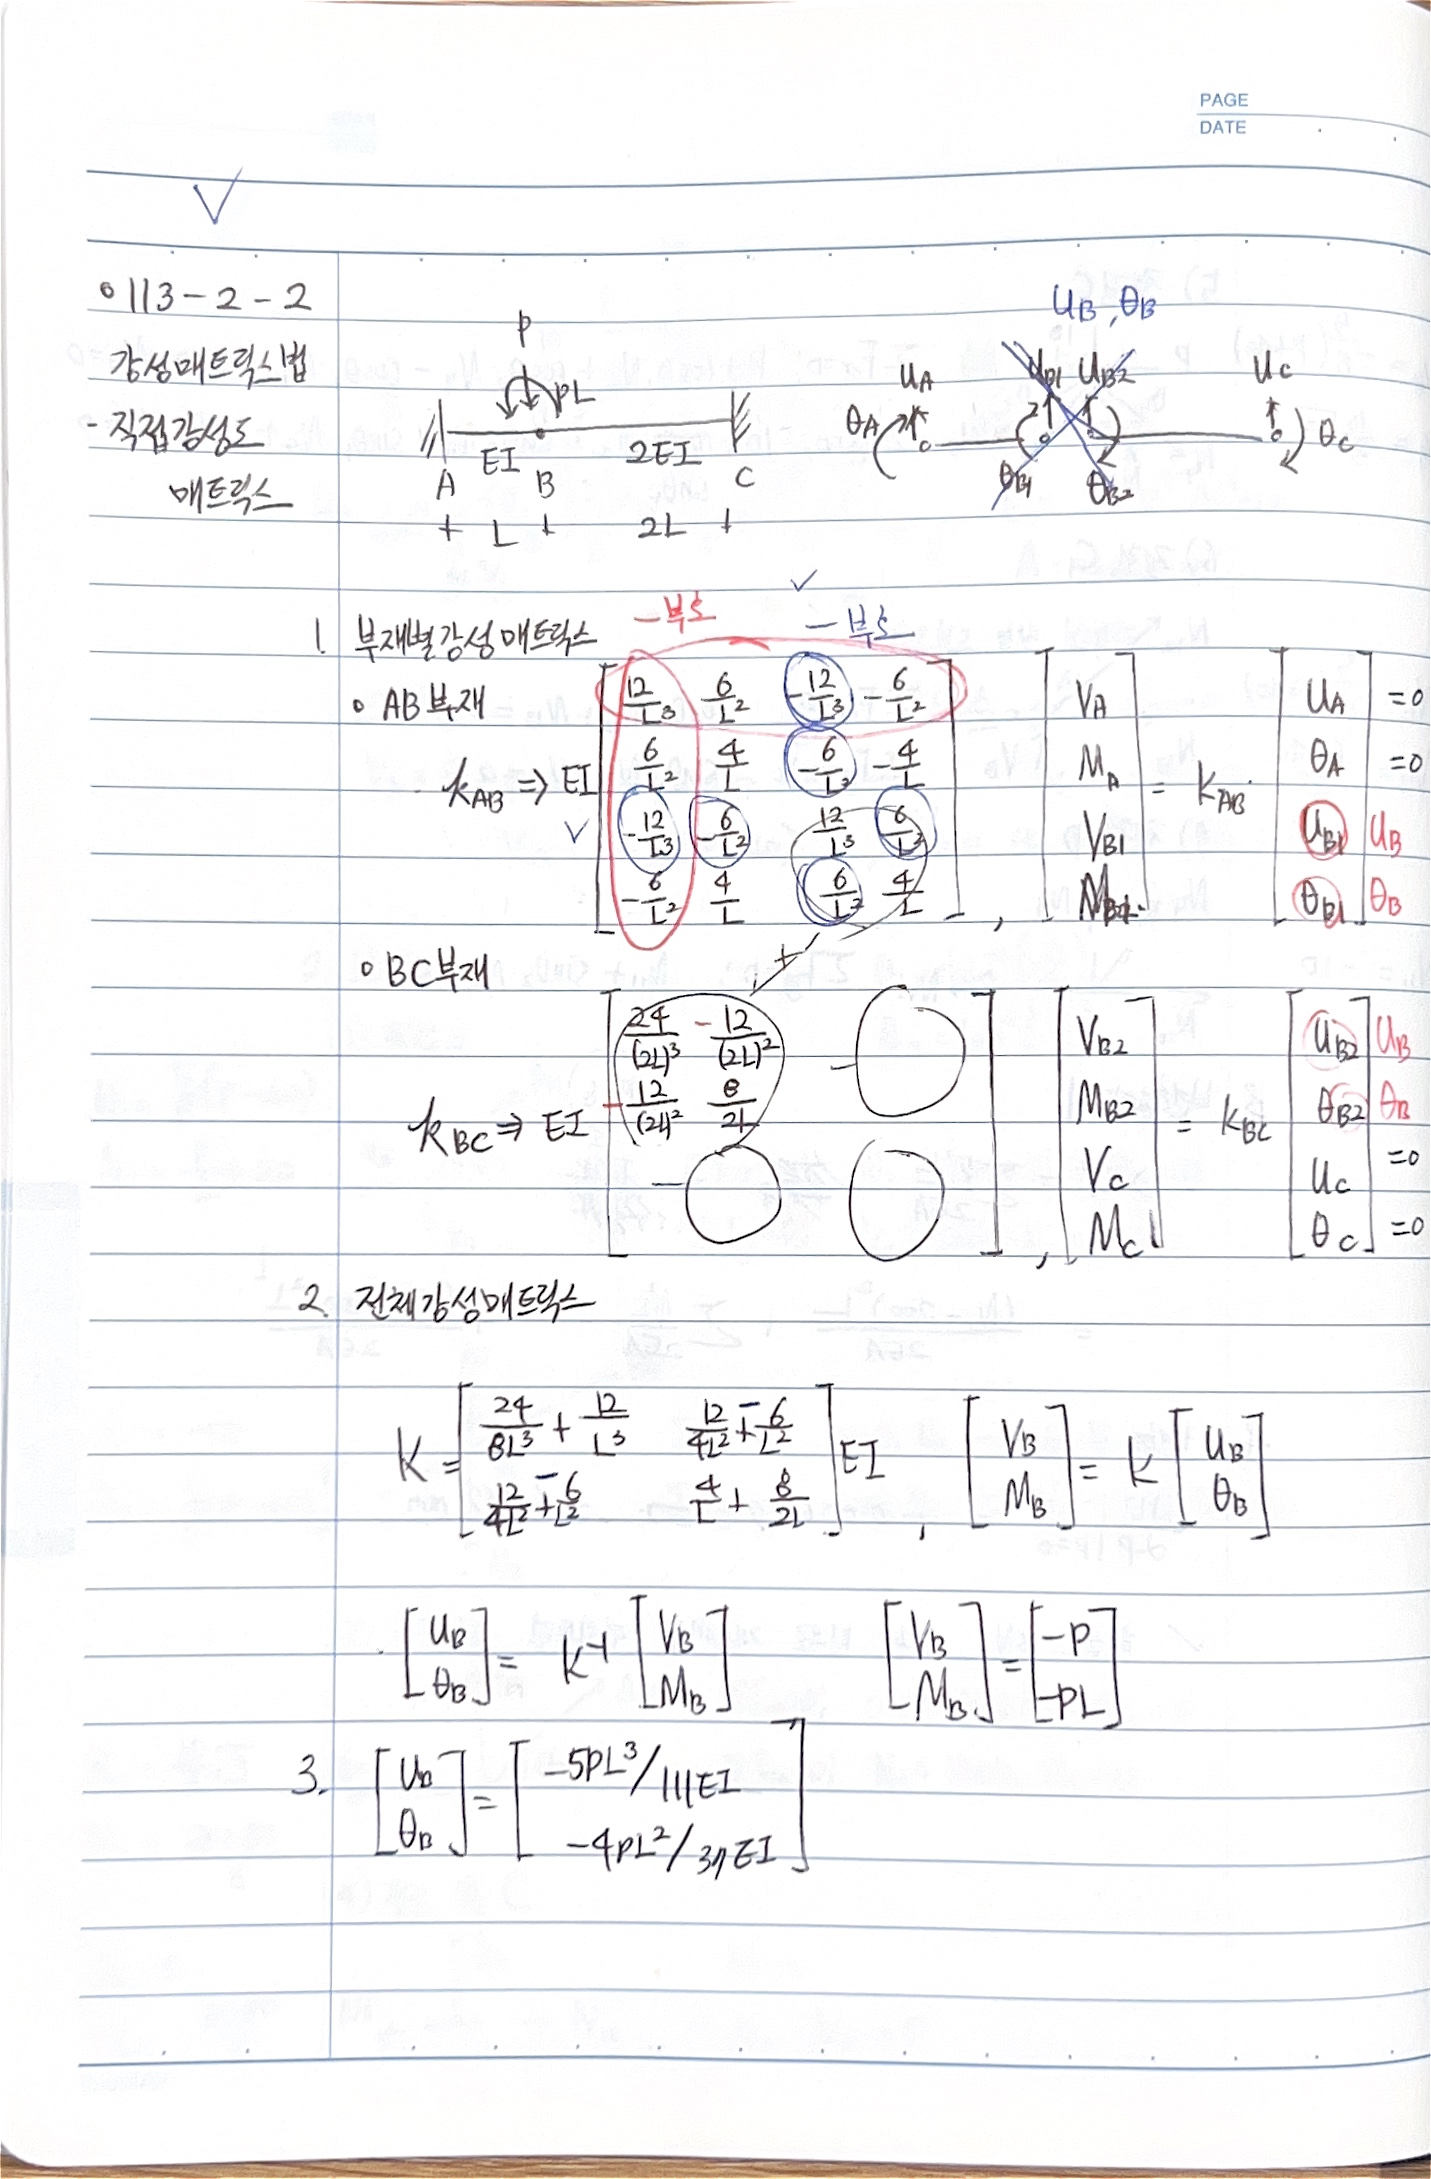 PAGE
DATE
° 113 - 2 - 2
강성매트릭스법
- 직접강성도
매트릭스
P
PL
EI 2EI
A B C
L 2L
U_B, θ_B
U_A U_B1 U_B2 U_C
θ_A θ_B1 θ_B2 θ_C
1. 부재별강성매트릭스 -부호 -부호
° AB부재
k_AB ⇒ EI
12/L³ 6/L² -12/L³ -6/L²
6/L² 4/L -6/L² -4/L
-12/L³ -6/L² 12/L³ 6/L²
-6/L² 4/L 6/L² 4/L
, V_A M_A V_B1 = k_AB
U_A = 0
θ_A = 0
U_B1 U_B
θ_B1 θ_B
+
° BC부재
k_BC ⇒ EI
24/(2L)³ -12/(2L)²
-12/(2L)² 8/2L
- -
, V_B2 M_B2 V_C M_C = k_BC
U_B2 U_B
θ_B2 θ_B
U_C = 0
θ_C = 0
2. 전체강성매트릭스
K = [ 24/8L³ + 12/L³ 12/4L² + 6/L² ] EI , [ V_B ] = K [ U_B ]
[ 12/4L² + 6/L² 4/L + 8/2L ] [ M_B ] [ θ_B ]
[ U_B ] = K⁻¹ [ V_B ] [ V_B ] = [ -P ]
[ θ_B ] [ M_B ] [ M_B ] [ -PL ]
3. [ U_B ] = [ -5PL³/111EI ]
[ θ_B ] [ -4PL²/37EI ]